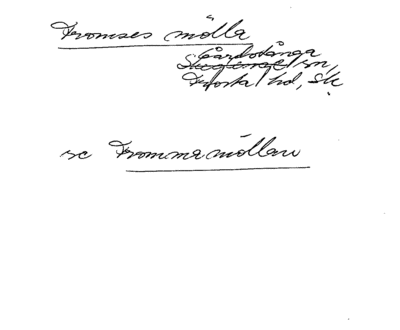 Fromses mölla
Gårdstånga
Skeglinge sn,
Frosta hd, Sk.
se Frommamöllan